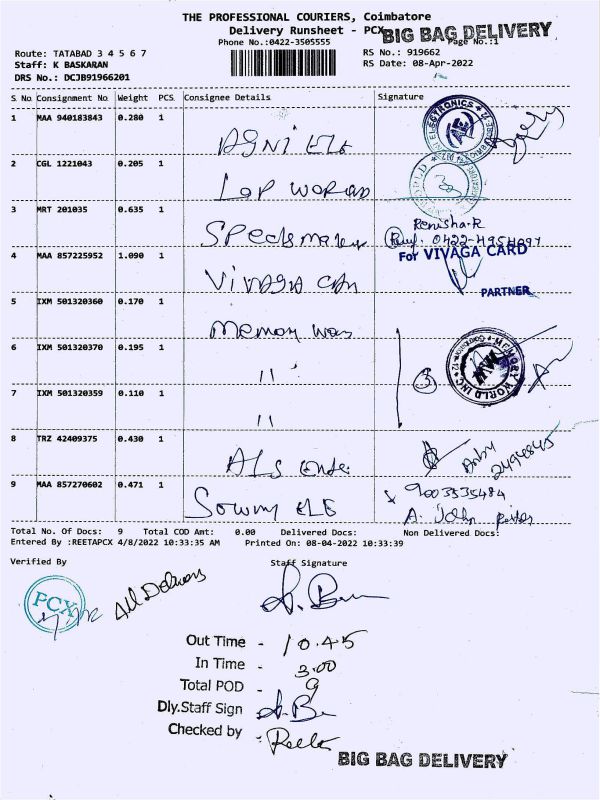 THE PROFESSIONAL COURIERS, Coimbatore
Delivery Runsheet - PCX
BIG BAG DELIVERY
Phone No.:0422-3505555
Page No.:1
Route: TATABAD 3 4 5 6 7
RS No.: 919662
Staff: K BASKARAN
RS Date: 08-Apr-2022
DRS No.: DCJB91966201
S No Consignment No Weight PCS Consignee Details Signature
1 MAA 940183843 0.280 1 AGNI ELE
2 CGL 1221043 0.205 1 LAP WORLD
3 MRT 201035 0.635 1 Specsmakers Renisha.R
0422-4954297
4 MAA 857225952 1.090 1 VIVAGA CARD For VIVAGA CARD
PARTNER
5 IXM 501320360 0.170 1 Memory World
6 IXM 501320370 0.195 1 11 3 MEMORY WORLD INC MWI
7 IXM 501320359 0.110 1 11
8 TRZ 42409375 0.430 1 ALS
2494845
9 MAA 857270602 0.471 1 Sowmy ELE 9003535484
A. John
Total No. Of Docs: 9 Total COD Amt: 0.00 Delivered Docs: Non Delivered Docs:
Entered By :REETAPCX 4/8/2022 10:33:35 AM Printed On: 08-04-2022 10:33:39
Verified By Staff Signature
PCX All Delivery
Out Time - 10.45
In Time - 3.00
Total POD - 9
Dly.Staff Sign
Checked by - Reeta
BIG BAG DELIVERY